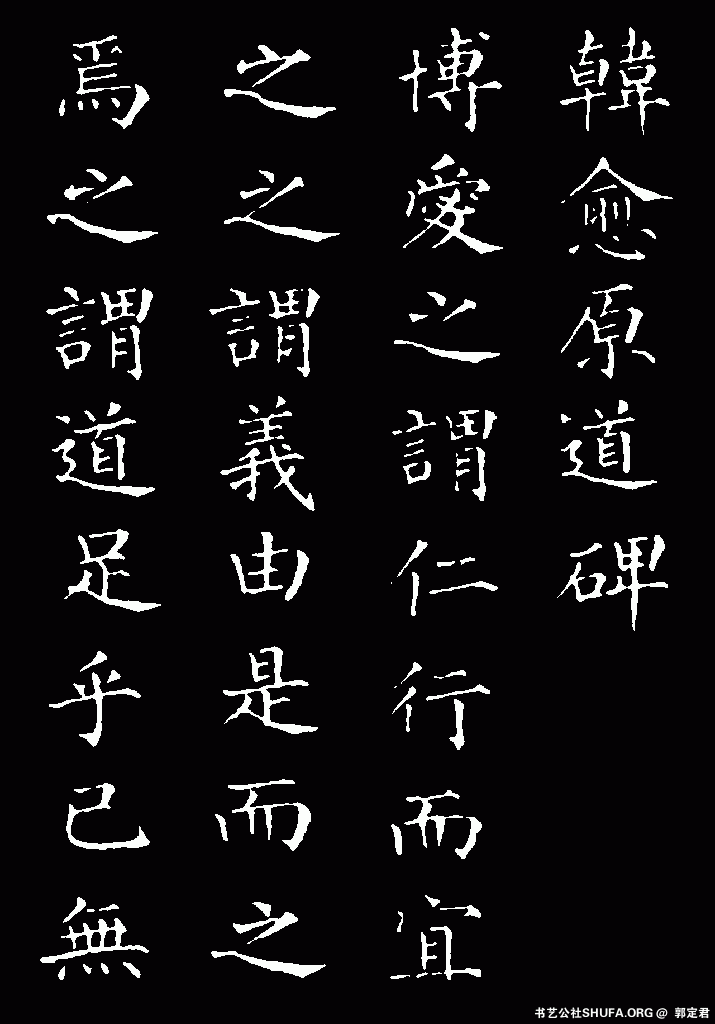 韓愈原道碑
博愛之謂仁行而宜
之之謂義由是而之
焉之謂道足乎己無
书艺公社SHUFA.ORG @ 郭定君